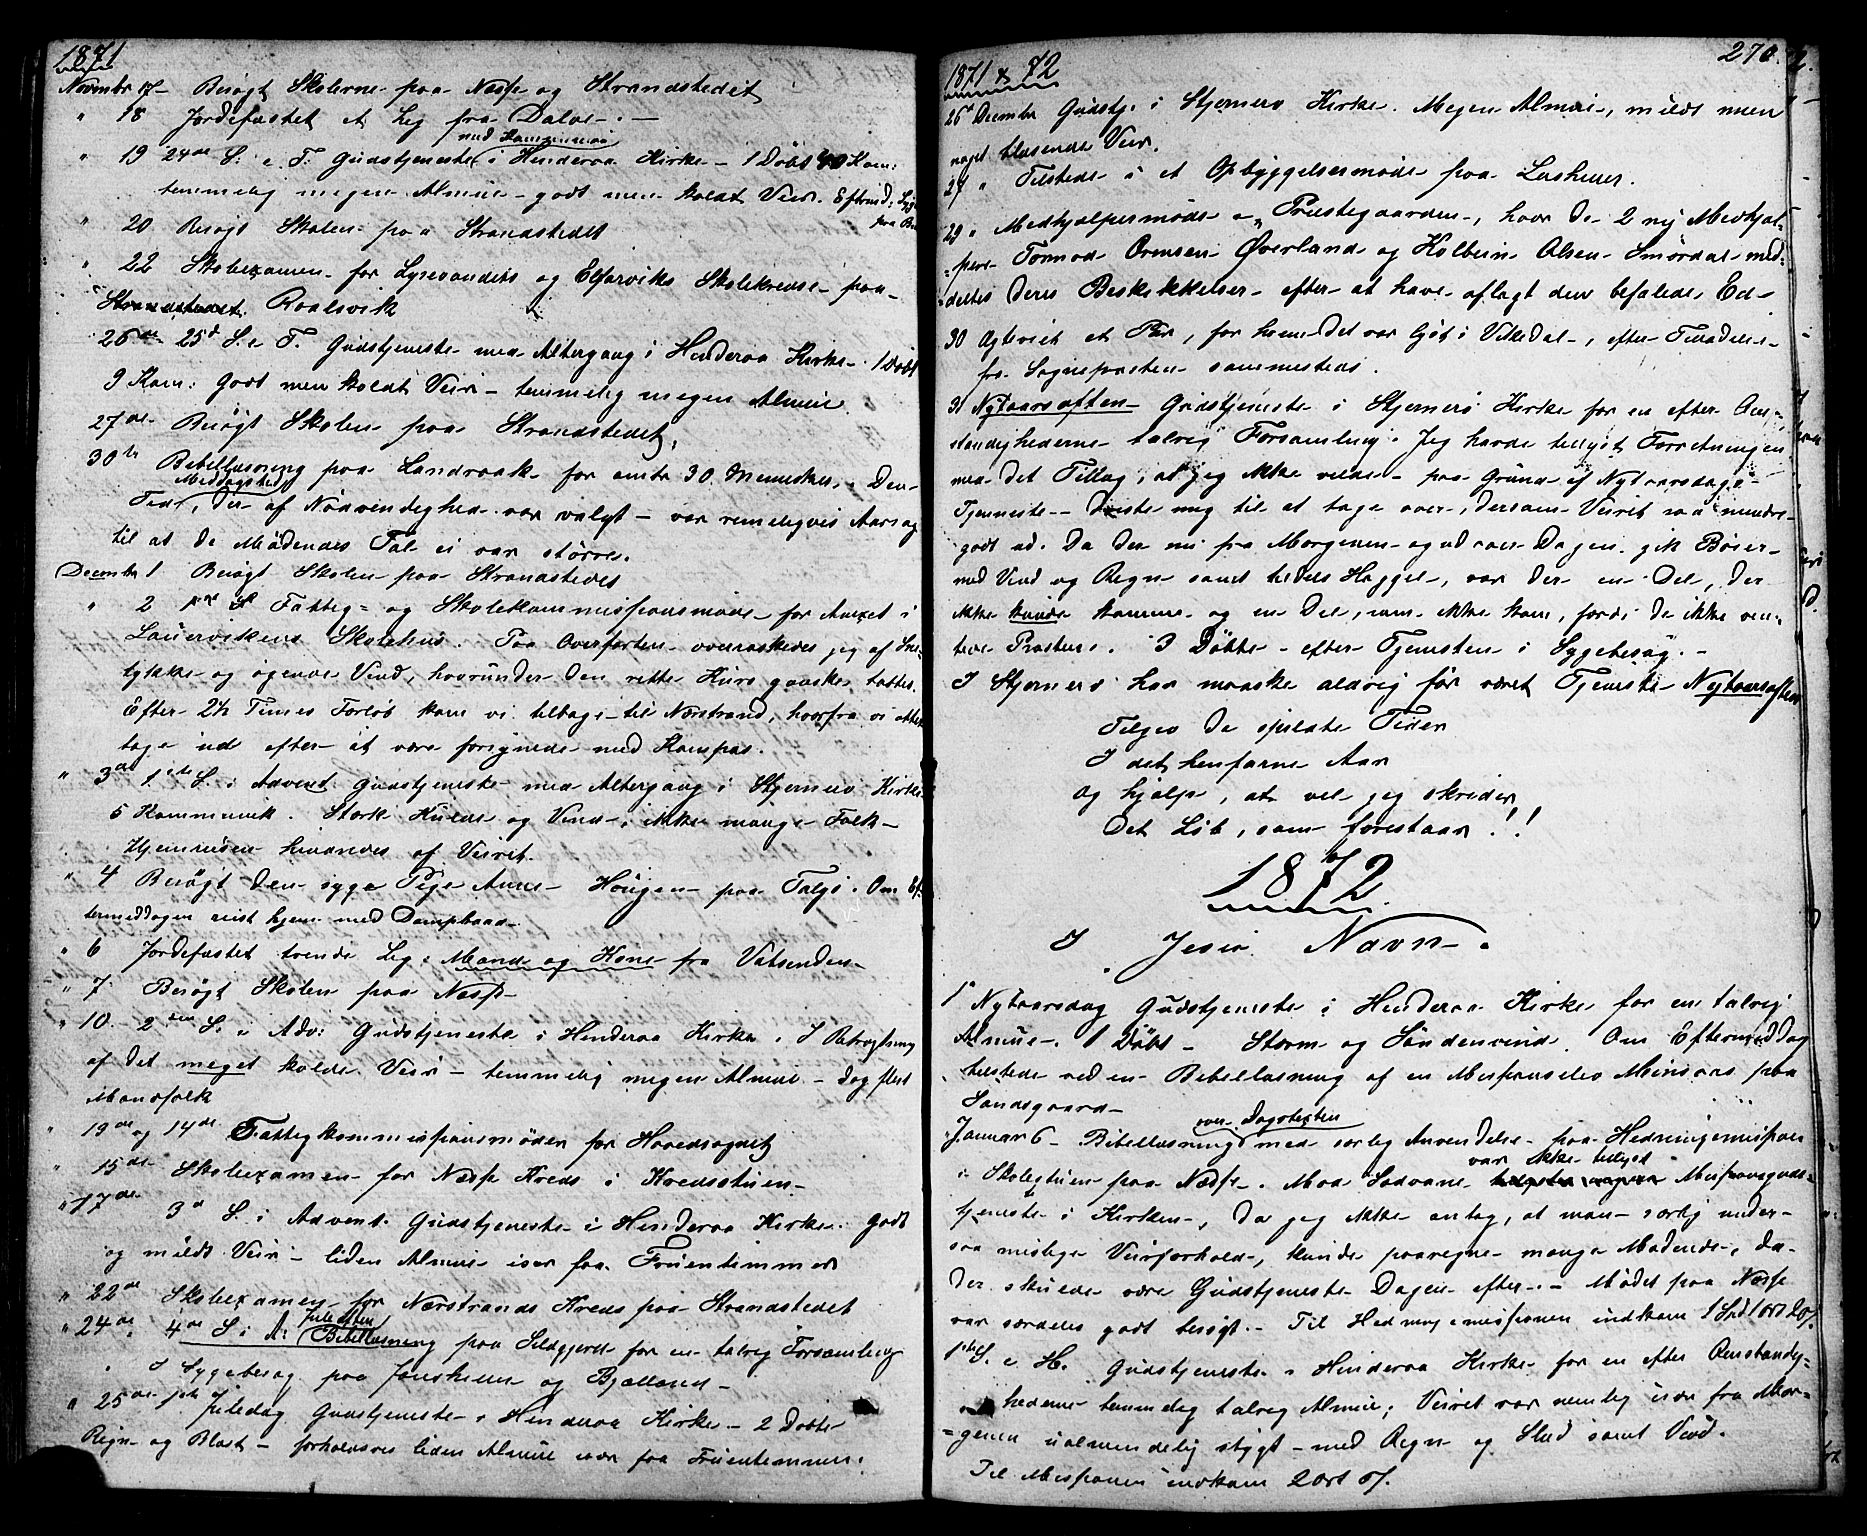 1871
Novembr 17 Besøgt Skolerne paa Næsse og Strandstedet
" 18 Jordefæstet et Lig fra Dalva.
med Kommunion
" 19 24de S. e. T. Gudstjeneste i Hinderaa Kirke – 1 Døbt 40 Kom:
temmelig megen Almue – godt men koldt Veir. Eftmd:
" 20 Besøgt Skolen paa Strandstedet
" 22 Skoleexamen for Lysevandets og Elfarviks Skolekredse paa
Strandstedet Roalsvik
26de 25d S. e. T. Gudstjeneste med Altergang i Hinderaa Kirke. 1 Døbt
9 Kom: godt men koldt Veir – temmelig megen Almue
27de Besøgt Skolen paa Strandstedet.
30te Bibellæsning paa Landraak for omtr 30 Mennesker. Den
Middagsted
Tid, der af Nødvendighed var valgt – var rimeligvis Aarsag
til at de Mødendes Tal ei var større.
Decembr 1 Besøgt Skolen paa Strandstedet
" 2 Fattig- og Skolekommissionsmøde for Anexet i
Lauervikens Skolehus. Paa Overfarten overraskedes jeg af Sne-
tykke og øgende Vind, hvorunder den rette Kurs ganske tabtes.
Efter 2½ Times Forløb kom vi tilbage til Nærstrand, hvorfra vi atter
toge ud efter at være forsynede med Kompas.
" 3de 1ste S. i Advent Gudstjeneste med Altergang i Stjernerø Kirke
5 Kommunik. Stærk Kulde og Vind; ikke mange Folk –
Hjemreisen hindredes af Veiret.
" 4 Besøgt den syge Pige Anne Hougen paa Talgø. Om Ef-
termiddagen reist hjem med Dampbaad
" 6 Jordefæstet trende Lig: Mand og Kone fra Vatsenden
" 7 Besøgt Skolen paa Næsse
" 10. 2den S. i Adv: Gudstjeneste i Hinderaa Kirke. I Betragtning
af det meget kolde Veir – temmelig megen Almue – dog flest
Mandfolk
" 13de og 14de Fattigkommissionsmøder for Hovedsognet
" 15de Skoleexamen for Næsse Kreds i Kredsstuen
" 17de 3d S. i Advent. Gudstjeneste i Hinderaa Kirke. Godt
og mildt Veir – liden Almue især faa Fruentimmer
" 22de Skoleexamen for Nærstrands Kreds paa Strandstedet
Juleaften
" 24de 4de S. i A: Bibellæsning paa Sedgjerde for en talrig Forsamling
I Sygebesøg paa Jonsheim og Bjelland
" 25de 1ste Juledag Gudstjeneste i Hinderaa Kirke – 2 Døbte
Regn og Blæst – forholdsvis liden Almue især faa Fruentimmer.
270.
1871 & 72
26de Decembr Gudstj. i Stjernerø Kirke. Megen Almue, mildt men
noget blæsende Veir.
27 " Tilstede i et Opbyggelsesmøde paa Lasheim.
29 " Medhjælpermøde i Prestegaarden, hvor de 2 nye Medhjæl-
pere Tormod Ormsen Øverland og Kolbein Olsen Smørdal med-
deeltes deres Beskikkelser efter at have aflagt den befalede Ed
30 Ægteviet et Par, for hvem det var lyst i Vikedal, efter Tilladelse
fra Sognepresten sammesteds.
31 Nytaarsaften Gudstjeneste i Stjernerø Kirke for en efter Om-
stændighederne talrig Forsamling. Jeg havde tillyst Forretningen
med det Tillæg, at jeg ikke vilde paa Grund af Nytaarsdags-
Tjeneste driste mig til at tage over, dersom Veiret saa mindre
godt ud. Da der nu fra Morgenen og ud over Dagen gik Bøier
med Vind og Regn samt tildels Haggel, var der en Del, der
ikke kunde komme og en Del, som ikke kom, fordi de ikke ven-
tede Presten. 3 Døbte – efter Tjenesten i Sygebesøg. –
I Stjernerø har maaske aldrig før været Tjeneste Nytaarsaften
Tilgiv de spildte Tider
I det henfarne Aar
og hjælp, at vel jeg skrider
Det Løb, som forestaar!!
1872
I Jesu Navn.
1ste Nytaarsdag Gudstjeneste i Hinderaa Kirke for en talrig
Almue. 1 Døbt – Storm og Søndenvind. Om Eftermiddag
tilstede ved en Bibellæsning af en Missionselev Minsaas paa
Sandsgaard –
over Dagsteksten
Januar 6 – Bibellæsning med særlig Anvendelse paa Hedningemissionen
var ikke tillyst
i Skolestuen paa Næsse. Mod Sædvane Missionsguds-
tjeneste i Kirken, da jeg ikke antog, at man særlig under
saa mislige Veirforhold, kunde paaregne mange Mødende, da
der skulde være Gudstjeneste Dagen efter. – Mødet paa Næsse
var særdeles godt besøgt. – Til Hedningemissionen indkom 1 Spd 1 ort 20 s.
1ste S. e. H. Gudstjeneste i Hinderaa Kirke for en efter Omstændig-
hederne temmelig talrig Almue; Veiret var nemlig især fra Mor-
genen ualmindelig stygt – med Regn og Slud samt Vind.
Til Missionen indkom 2 ort 6 s.